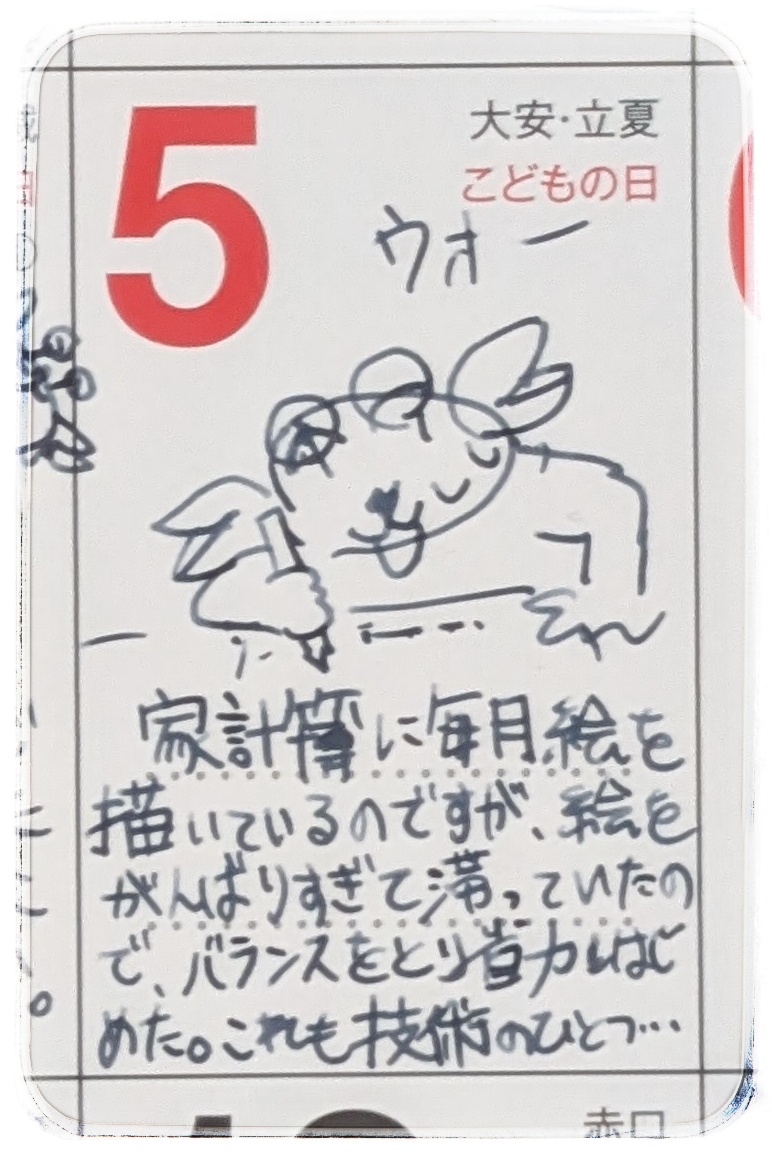 5
大安・立夏
こどもの日
ウオー
家計簿に毎月絵を
描いているのですが、絵を
がんばりすぎて滞っていたの
で、バランスをとり省力はじ
めた。これも技術のひとつ…
赤口